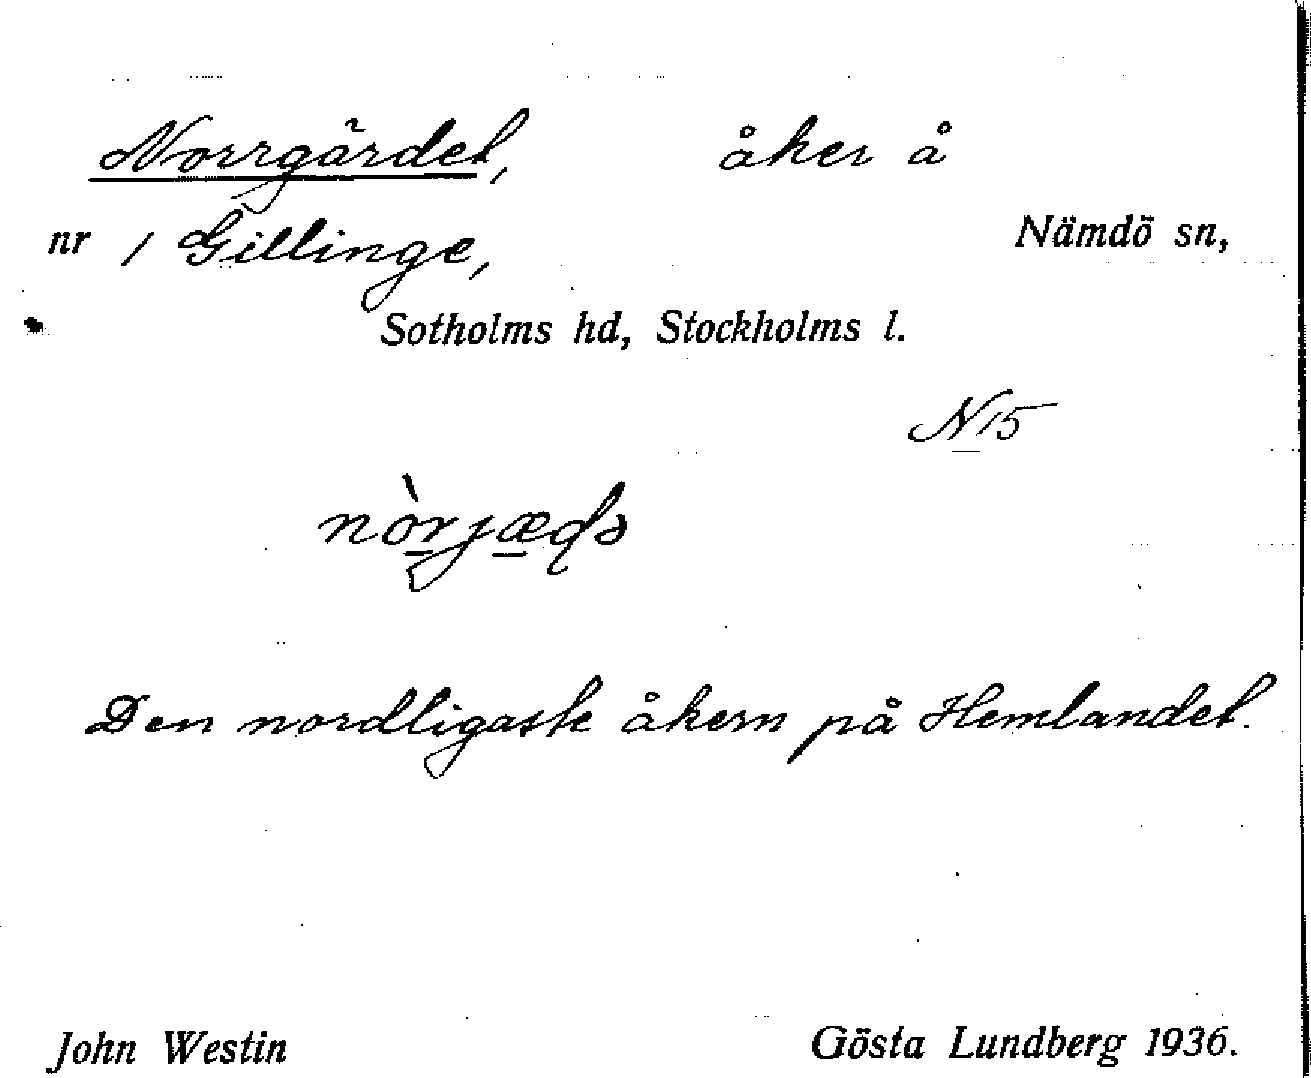 Norrgärdet, åker å
nr 1 Gillinge, Nämdö sn,
Sotholms hd, Stockholms l.
N 15
Den nordligaste åkern på Hemlandet.
John Westin Gösta Lundberg 1936.